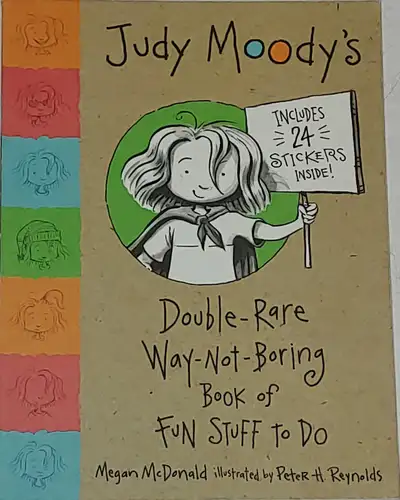 Judy Moody's
INCLUDES
24
STICKERS
INSIDE!
Double-Rare
Way-Not-Boring
Book of
Fun Stuff to Do
Megan McDonald illustrated by Peter H. Reynolds